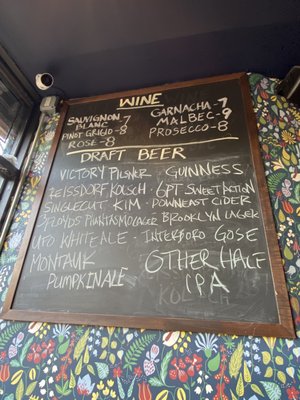 WINE
SAUVIGNON - 7
BLANC
PINOT GRIGIO - 8
ROSE - 8
GARNACHA - 7
MALBEC - 9
PROSECCO - 8
DRAFT BEER
VICTORY PILSNER - GUINNESS
REISSDORF KOLSCH - 6PT SWEET ACTION
SINGLECUT KIM - DOWNEAST CIDER
3 FLOYDS LAGER BROOKLYN LAGER
UFO WHITE ALE - INTERBORO GOSE
MONTAUK
PUMPKIN ALE
OTHER HALF
IPA